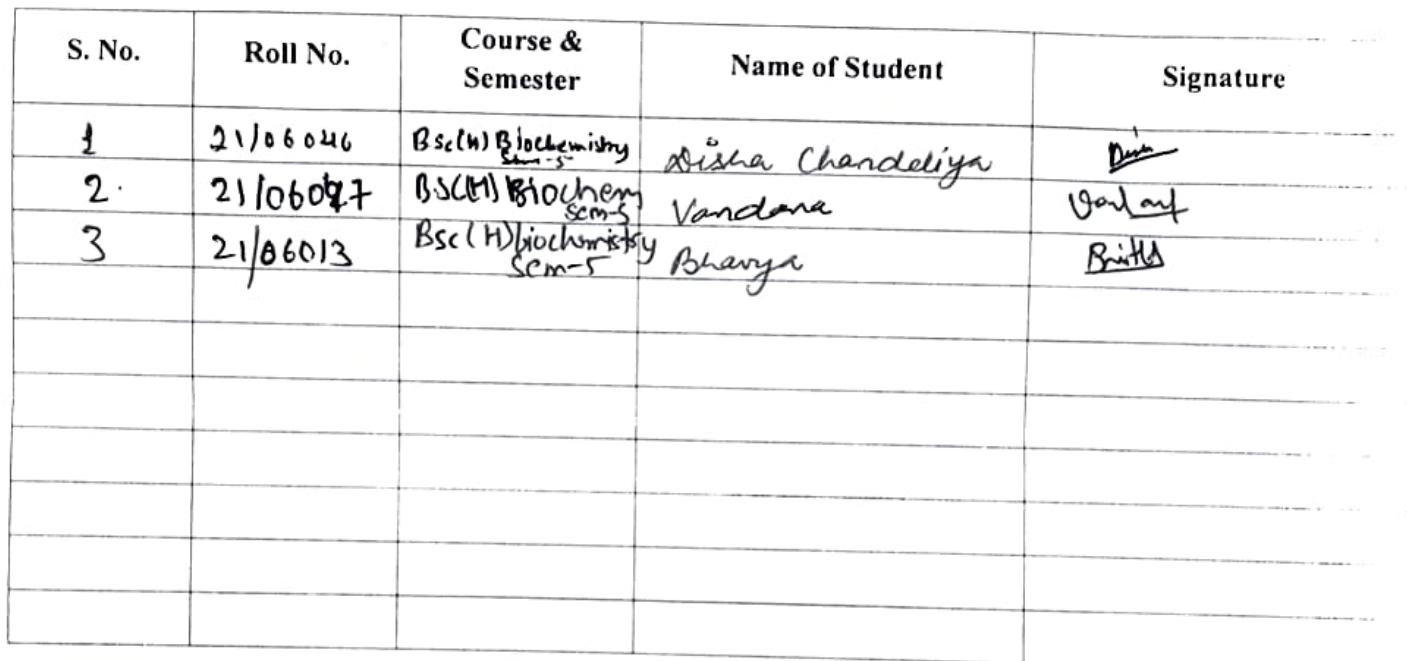 S. No. Roll No. Course & Semester Name of Student Signature
1 21/06046 Bsc(H) Biochemistry Sem-5 Disha Chandeliya
2. BSc(H) Biochem Sem-5 Vandana
3 21/06013 Bsc(H) biochemistsy Sem-5 Bhavya